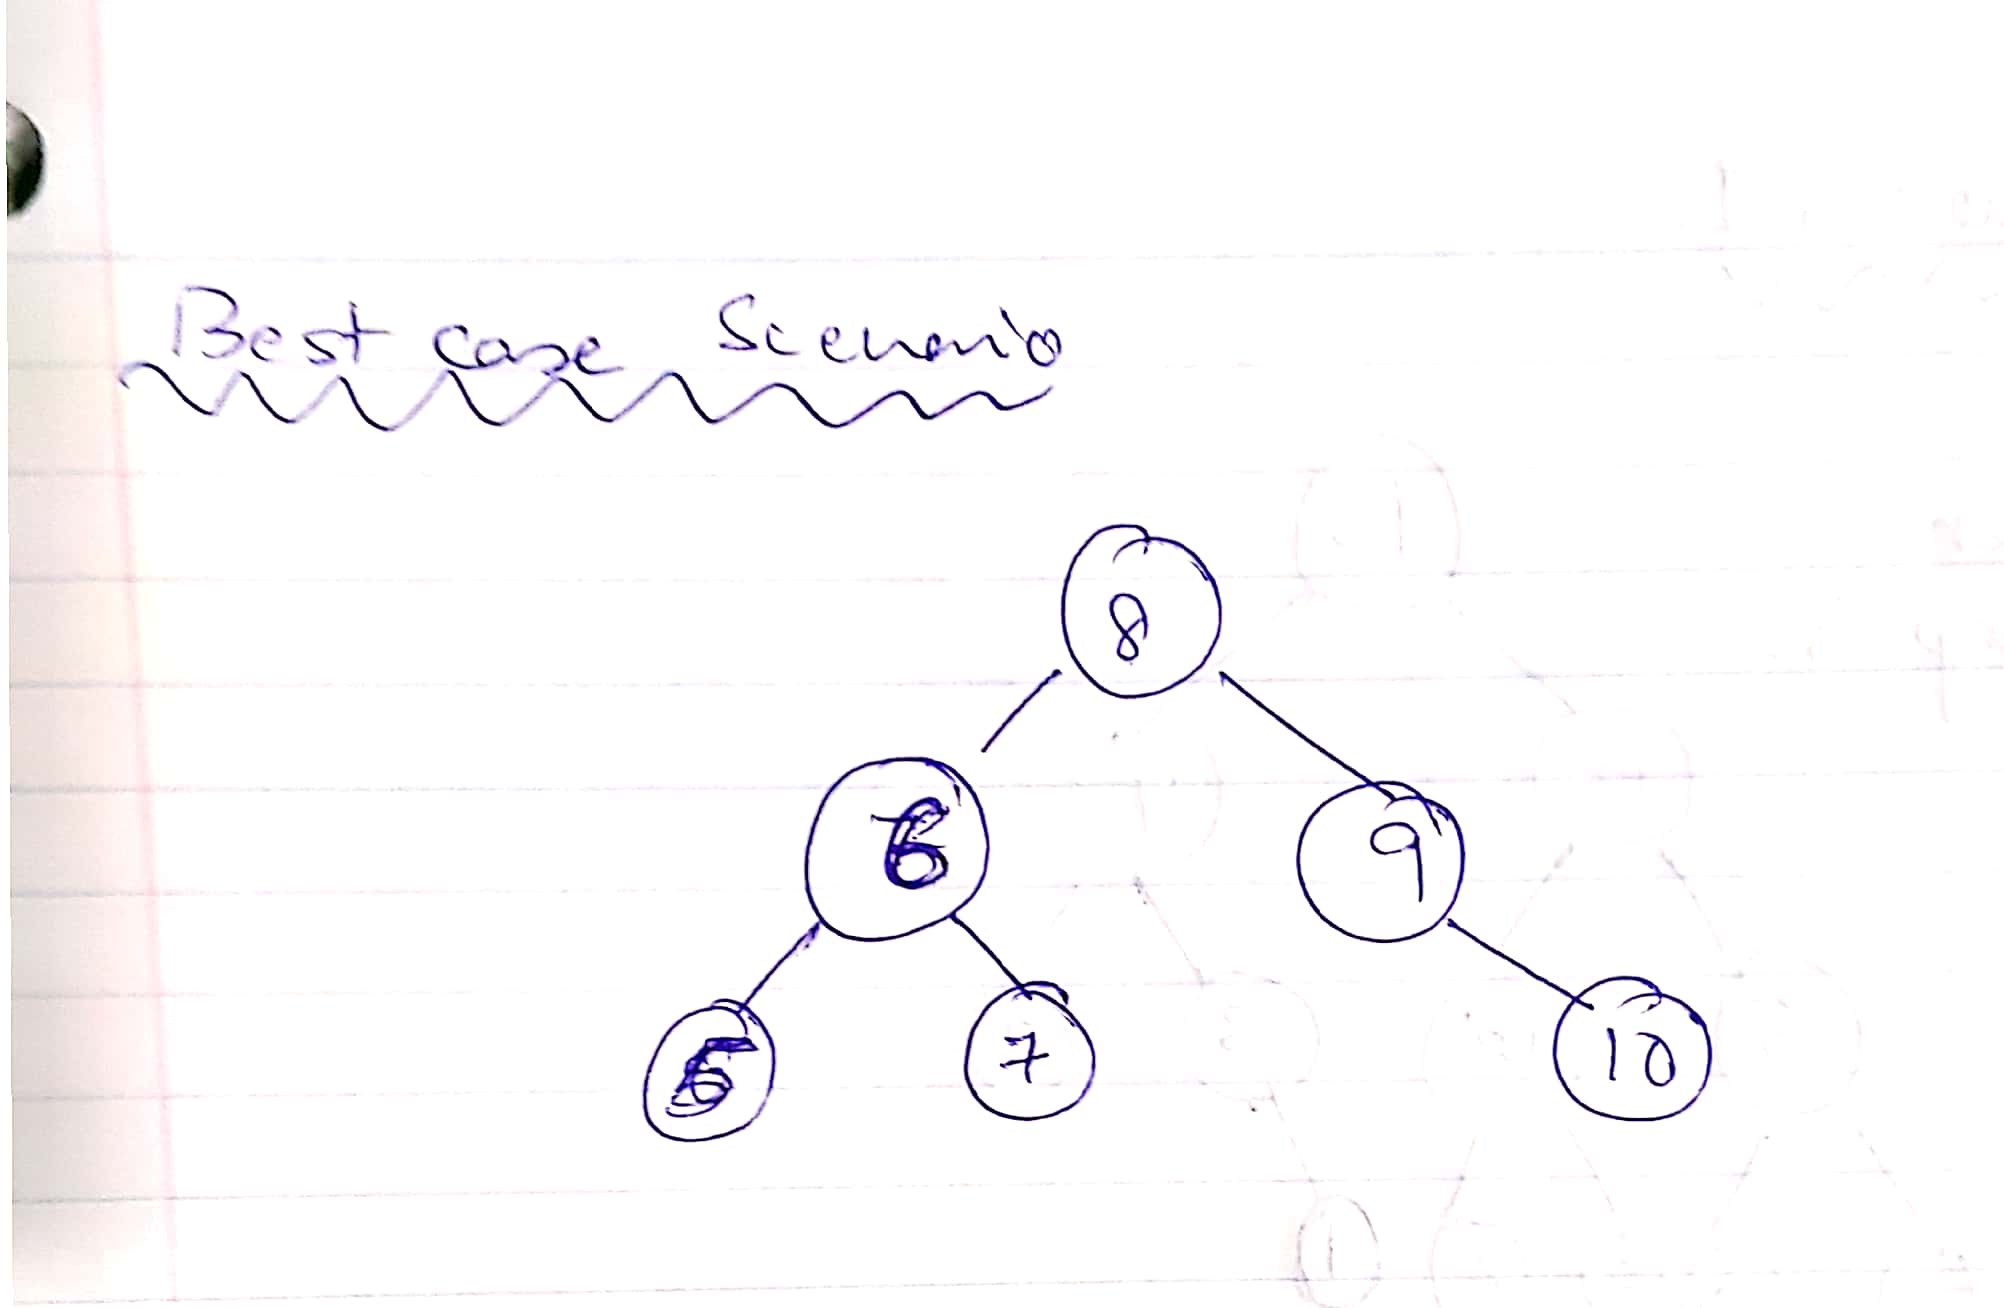 Best case Scenario
8
6 9
5 7 10